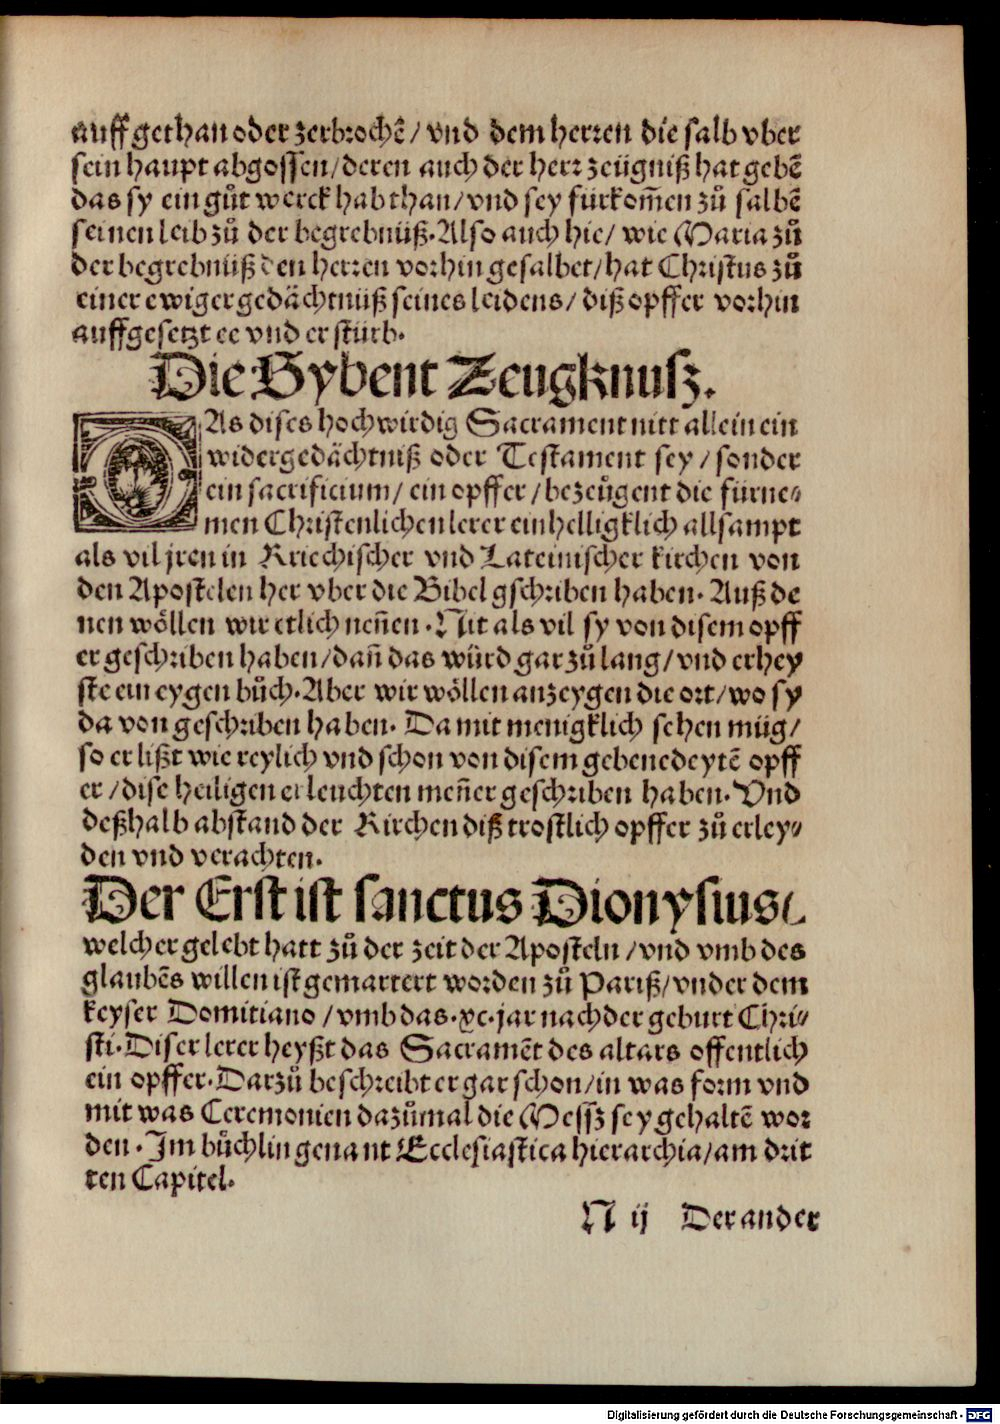 auff gethan oder zerbrochē / vnd dem herren die salb vber
sein haupt abgossen / deren auch der herr zeügniß hat gebē
das sy ein gůt werck hab than / vnd sey fürkom̃en zů salbē
seinen leib zů der begrebnüß. Also auch hie / wie Maria zů
der begrebnüß den herren vorhin gesalbet / hat Christus zů
einer ewiger gedächtnüß seines leidens / diß opffer vorhin
auffgesetzt ee vnd er stürb.
Die Sybent Zeugknusz.
DAs dises hochwirdig Sacrament nitt allein ein
widergedächtniß oder Testament sey / sonder
ein sacrificium / ein opffer / bezeügent die fürne⸗
men Christenlichen lerer einhelligklich allsampt
als vil jren in Kriechischer vnd Lateinischer kirchen von
den Apostelen her vber die Bibel gschriben haben. Auß de
nen wöllen wir etlich neñen. Nit als vil sy von disem opff
er geschriben haben / dañ das würd gar zů lang / vnd erhey
ste ein eygen bůch. Aber wir wöllen anzeygen die ort / wo sy
da von geschriben haben. Da mit menigklich sehen müg /
so er lißt wie reylich vnd schon von disem gebenedeytē opff
er / dise heiligen erleuchten meñer geschriben haben. Vnd
deßhalb abstand der Kirchen diß trostlich opffer zů erley⸗
den vnd verachten.
Der Erst ist sanctus Dionysius /
welcher gelebt hatt zů der zeit der Aposteln / vnd vmb des
glaubēs willen ist gemartert worden zů Pariß / vnder dem
keyser Domitiano / vmb das .xc. jar nach der geburt Chri⸗
sti. Diser lerer heyßt das Sacramēt des altars offentlich
ein opffer. Darzů beschreibt er gar schon / in was form vnd
mit was Ceremonien dazůmal die Messz sey gehaltē wor
den. Im bůchlin genant Ecclesiastica hierarchia / am drit
ten Capitel.
N ij Der ander
Digitalisierung gefördert durch die Deutsche Forschungsgemeinschaft - DFG